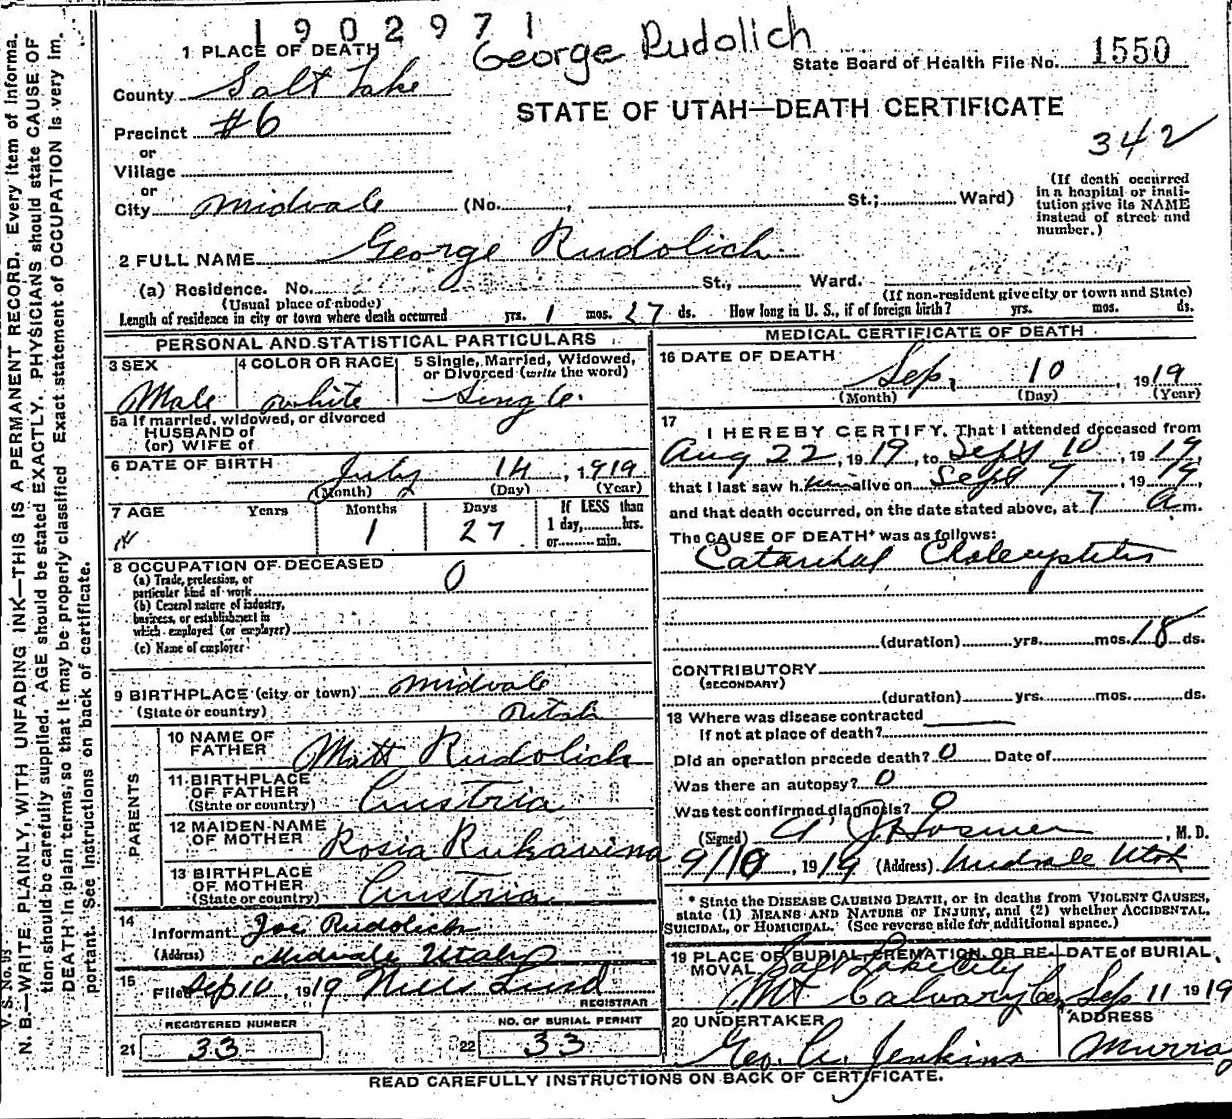 1902971
George Rudolich
1 PLACE OF DEATH
State Board of Health File No. 1550
County Salt Lake
STATE OF UTAH—DEATH CERTIFICATE
Precinct #6
342
or
Village
or
City Midvale (No. , St.; Ward)
(If death occurred in a hospital or insti-
tution give its NAME instead of street and number.)
2 FULL NAME George Rudolich
(a) Residence. No. St., Ward.
(Usual place of abode) (If non-resident give city or town and State)
Length of residence in city or town where death occurred yrs. 1 mos. 27 ds. How long in U. S., if of foreign birth? yrs. mos. ds.
PERSONAL AND STATISTICAL PARTICULARS
3 SEX Male
4 COLOR OR RACE white
5 Single, Married, Widowed, or Divorced (write the word) Single.
5a If married, widowed, or divorced
HUSBAND of
(or) WIFE of
6 DATE OF BIRTH July 14, 1919
(Month) (Day) (Year)
7 AGE Years Months Days If LESS than
1 27 1 day, hrs.
or min.
8 OCCUPATION OF DECEASED
(a) Trade, profession, or particular kind of work 0
(b) General nature of industry, business, or establishment in which employed (or employer)
(c) Name of employer
9 BIRTHPLACE (city or town) Midvale
(State or country) Utah
PARENTS
10 NAME OF FATHER Matt Rudolich
11 BIRTHPLACE OF FATHER (State or country) Austria
12 MAIDEN NAME OF MOTHER Rosia Rukavina
13 BIRTHPLACE OF MOTHER (State or country) Austria
14 Informant Joe Rudolich
(Address) Midvale Utah
15 Filed Sep 10, 1919 Niels Lind
REGISTRAR
REGISTERED NUMBER
21 33
NO. OF BURIAL PERMIT
22 33
MEDICAL CERTIFICATE OF DEATH
16 DATE OF DEATH Sep. 10, 1919
(Month) (Day) (Year)
17 I HEREBY CERTIFY, That I attended deceased from
Aug 22, 1919, to Sept 10, 1919,
that I last saw him alive on Sept 9, 1919,
and that death occurred, on the date stated above, at 7 a m.
The CAUSE OF DEATH* was as follows:
Catarrhal Cholecystitis
(duration) yrs. mos. 18 ds.
CONTRIBUTORY
(SECONDARY)
(duration) yrs. mos. ds.
18 Where was disease contracted
If not at place of death?
Did an operation precede death? 0 Date of
Was there an autopsy? 0
Was test confirmed diagnosis? 0
(Signed) A J Hosmer, M. D.
9/10, 1919 (Address) Midvale Utah
* State the DISEASE CAUSING DEATH, or in deaths from VIOLENT CAUSES,
state (1) MEANS AND NATURE OF INJURY, and (2) whether ACCIDENTAL,
SUICIDAL, or HOMICIDAL. (See reverse side for additional space.)
19 PLACE OF BURIAL, CREMATION, OR RE-
MOVAL Salt Lake City
Mt Calvary Cem
DATE OF BURIAL
Sep 11 1919
20 UNDERTAKER
Geo. A. Jenkins
ADDRESS
Murray
READ CAREFULLY INSTRUCTIONS ON BACK OF CERTIFICATE.
V. S. No. 95
N. B.—WRITE PLAINLY, WITH UNFADING INK—THIS IS A PERMANENT RECORD. Every item of informa-
tion should be carefully supplied. AGE should be stated EXACTLY. PHYSICIANS should state CAUSE OF
DEATH in plain terms, so that it may be properly classified. Exact statement of OCCUPATION is very im-
portant. See Instructions on back of certificate.